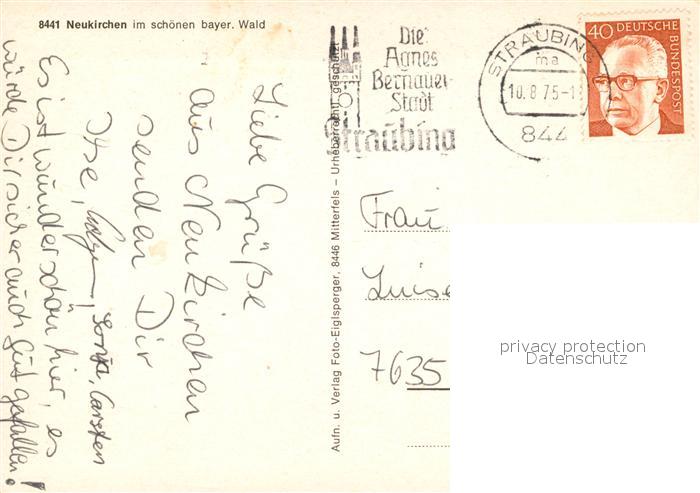 8441 Neukirchen im schönen bayer. Wald
Liebe Grüße
aus Neukirchen
senden Dir
Ilse, Sonja, Carsten
Es ist wunderschön hier, es
würde Dir sicher auch gut gefallen!
Aufn. u. Verlag Foto-Eiglsperger, 8446 Mitterfels – Urheberrechtl. geschützt
Die
Agnes
Bernauer
Stadt
Straubing
STRAUBING
ma
10.8.75-1
844
40 DEUTSCHE
BUNDESPOST
Frau
Luise
7635
privacy protection
Datenschutz